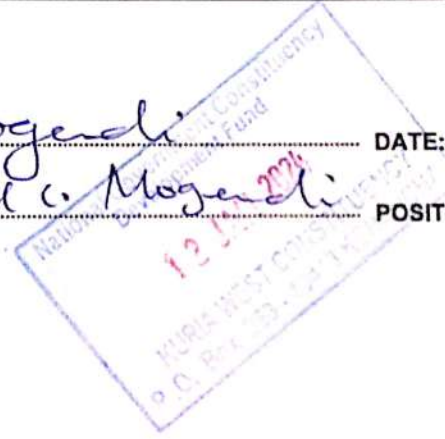 ogendi
DATE:
c. Mogendi
POSIT
National Government Constituency
Development Fund
12 2024
KURIA WEST CONSTITUENCY
P.O. Box